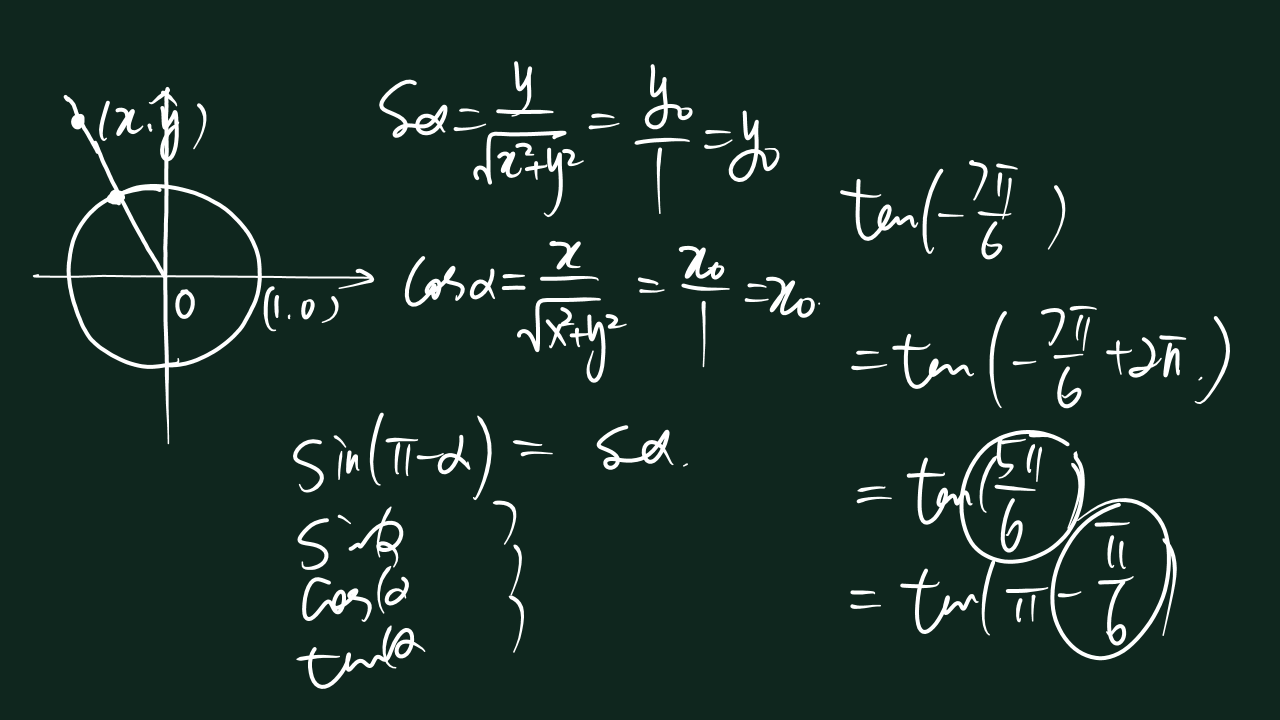 (x,y)
O
(1,0)
Sα = y/√(x²+y²) = y₀/1 = y₀
cosα = x/√(x²+y²) = x₀/1 = x₀.
sin(π-α) = Sα.
cos(α
tan(-7π/6)
= tan(-7π/6 + 2π.)
= tan(5π/6)
= tan(π - π/6)